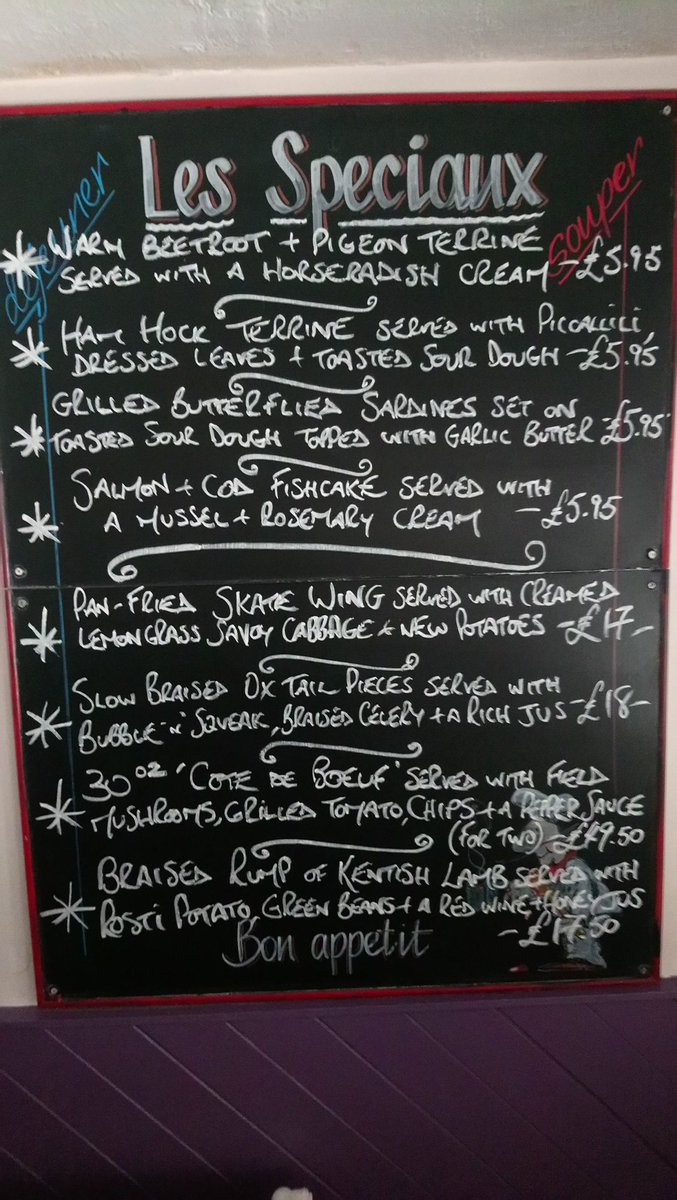 Les Speciaux
dejeuner
souper
* WARM BEETROOT + PIGEON TERRINE
SERVED WITH A HORSERADISH CREAM - £5.95
* HAM HOCK TERRINE SERVED WITH PICCALLILI,
DRESSED LEAVES + TOASTED SOUR DOUGH - £5.95
* GRILLED BUTTERFLIED SARDINES SET ON
TOASTED SOUR DOUGH TOPPED WITH GARLIC BUTTER £5.95
* SALMON + COD FISHCAKE SERVED WITH
A MUSSEL + ROSEMARY CREAM - £5.95
* PAN-FRIED SKATE WING SERVED WITH CREAMED
LEMONGRASS SAVOY CABBAGE + NEW POTATOES - £17-
* SLOW BRAISED OX TAIL PIECES SERVED WITH
BUBBLE 'N' SQUEAK, BRAISED CELERY + A RICH JUS - £18-
* 30oz 'COTE DE BOEUF' SERVED WITH FIELD
MUSHROOMS, GRILLED TOMATO, CHIPS + A PEPPER SAUCE
(FOR TWO) £49.50
* BRAISED RUMP OF KENTISH LAMB SERVED WITH
ROSTI POTATO, GREEN BEANS + A RED WINE + HONEY JUS
- £17.50
Bon appetit